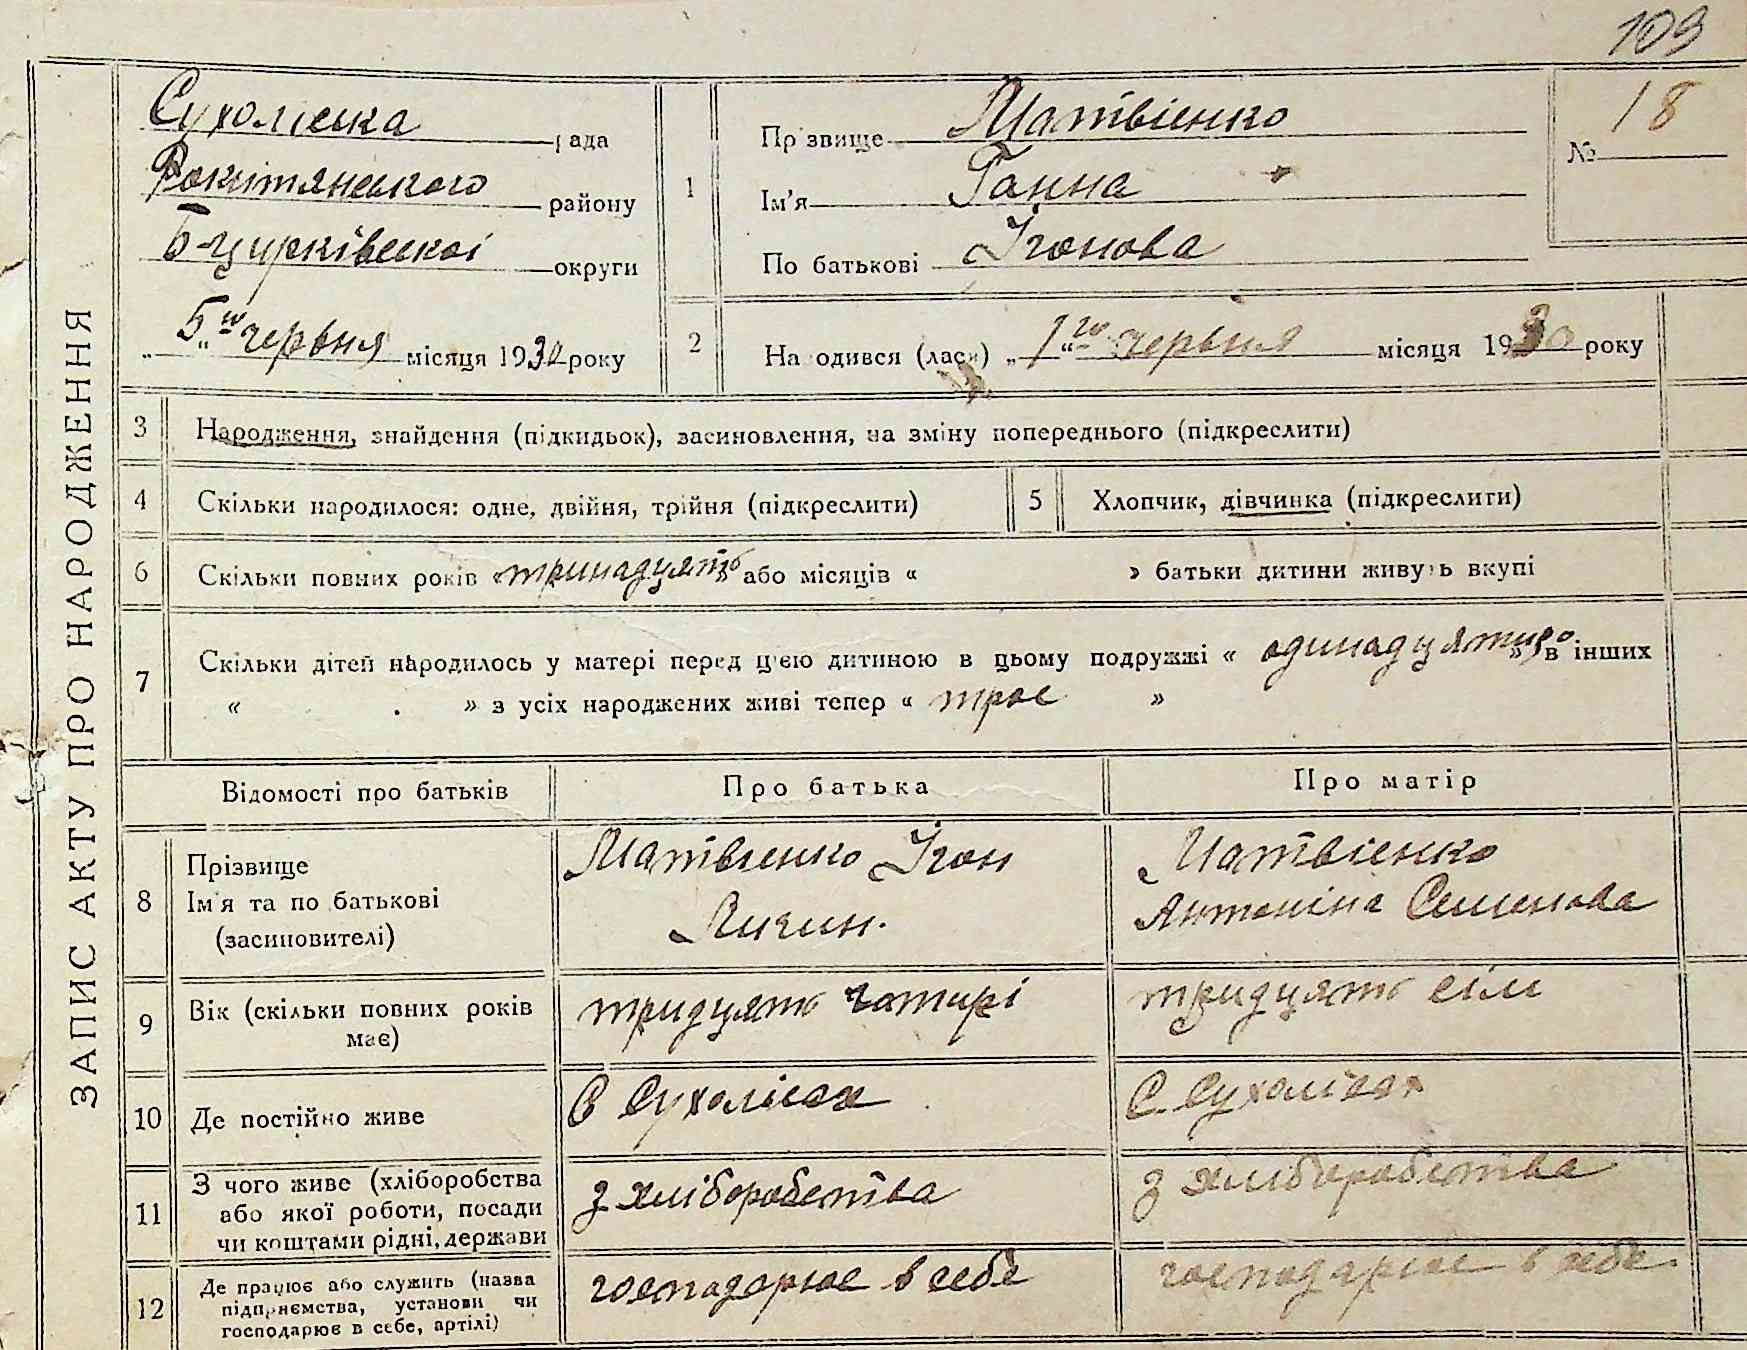 103
ЗАПИС АКТУ ПРО НАРОДЖЕННЯ
Сухоліська рада
Рокитянського району
Б-церківської округи
„5го“ червня місяця 1930 року
1
Прізвище Матвієнко
Ім'я Ганна
По батькові Ігонова
№ 18
2
Народився (лася) „1го“ червня місяця 1930 року
3
Народження, знайдення (підкидьок), засиновлення, на зміну попереднього (підкреслити)
4
Скільки народилося: одне, двійня, трійня (підкреслити)
5
Хлопчик, дівчинка (підкреслити)
6
Скільки повних років «тринадцять» або місяців « » батьки дитини живуть вкупі
7
Скільки дітей народилось у матері перед ц'єю дитиною в цьому подружжі « одинадцятиро » в інших
« » з усіх народжених живі тепер « троє »
Відомості про батьків
Про батька
Про матір
8
Прізвище
Ім'я та по батькові
(засиновителі)
Матвієнко Ігон
Матвієнко
Антоніна Семенова
9
Вік (скільки повних років
має)
тридцять чотирі
тридцять сім
10
Де постійно живе
С Сухолісах
С. Сухолісах
11
З чого живе (хліборобства
або якої роботи, посади
чи коштами рідні, держави
з хліборобства
з хліборобства
12
Де працює або служить (назва
підприємства, установи чи
господарює в себе, артілі)
господарює в себе
господарює в себе